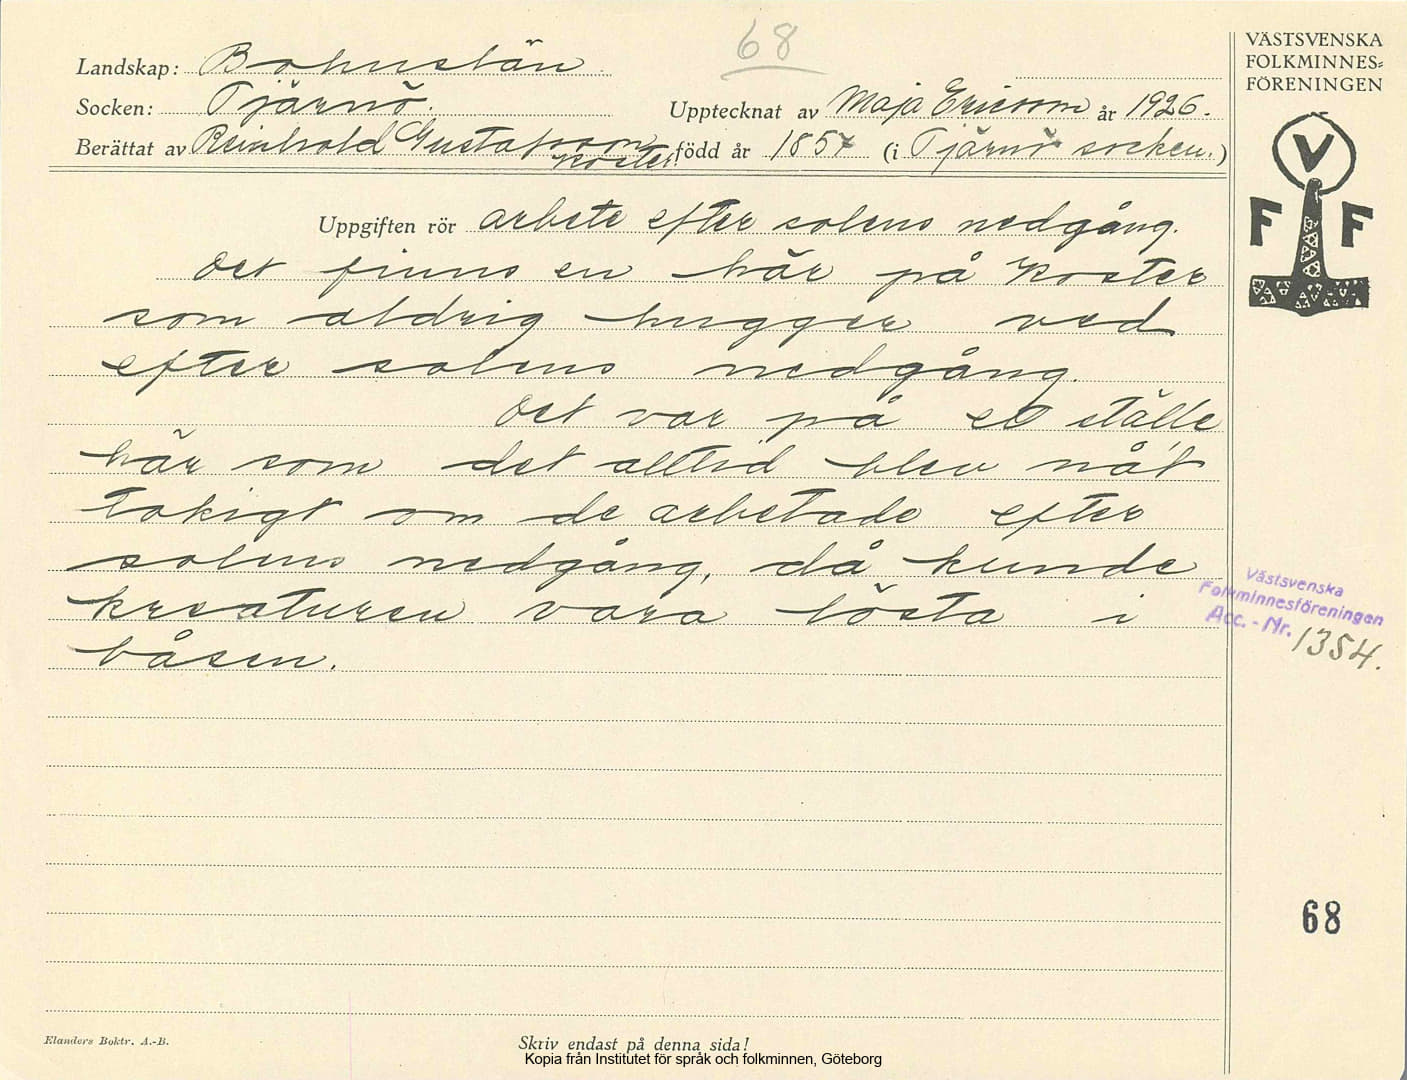 68
VÄSTSVENSKA
FOLKMINNES=
FÖRENINGEN
Landskap: Bohuslän
Socken: Tjärnö.
Upptecknat av Maja Ericson år 1926.
Berättat av Reinhold Gustafsson
Koster.
född år 1857 (i Tjärnö socken.)
V
F F
Uppgiften rör arbete efter solens nedgång.
Det finns en här på Koster
som aldrig hugger ved
efter solens nedgång.
Det var på et ställe
här som det alltid blev nåt
tokigt om de arbetade efter
solens nedgång, då kunde
kreaturen vara lösta i
båsen.
Västsvenska
Folkminnesföreningen
Acc. - Nr. 1354.
68
Elanders Boktr. A.-B.
Skriv endast på denna sida!
Kopia från Institutet för språk och folkminnen, Göteborg